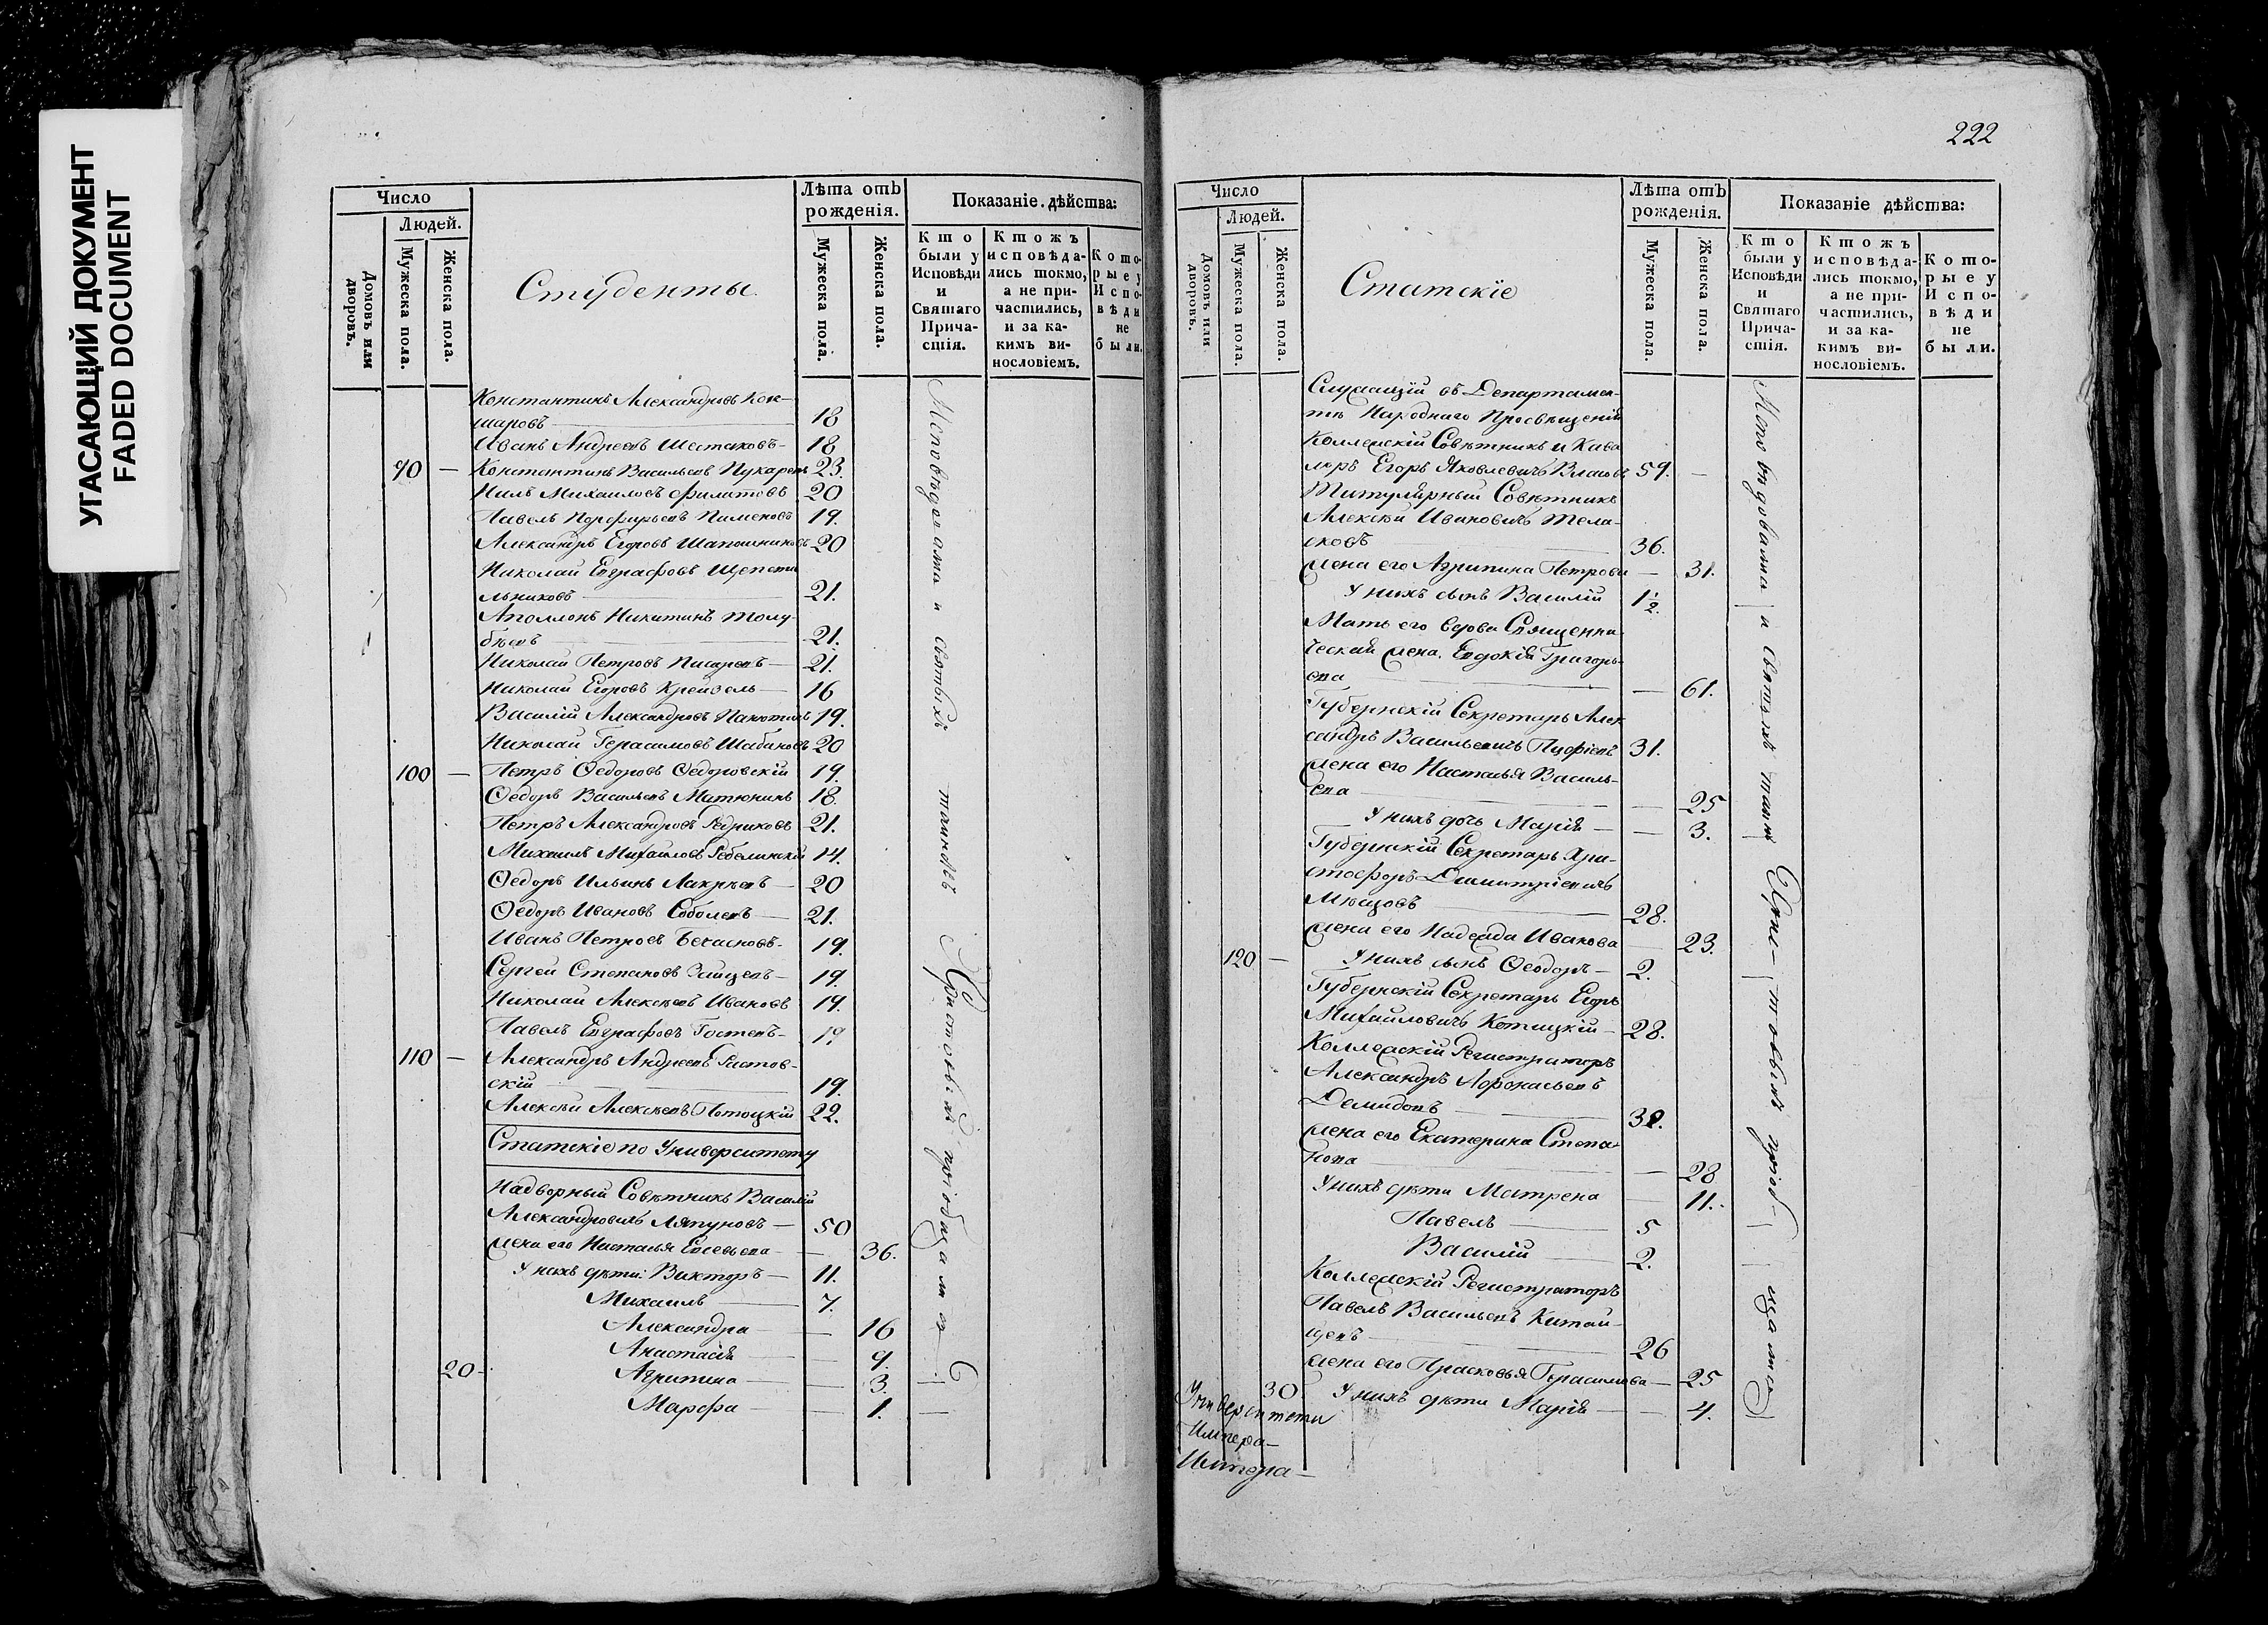 УГАСАЮЩИЙ ДОКУМЕНТ
FADED DOCUMENT
Число
Людей.
Домовъ или дворовъ.
Мужеска пола.
Женска пола.
Студенты
Лѣта отъ рожденія.
Мужеска пола.
Женска пола.
Показаніе дѣйства:
Кто были у Исповѣди и Святаго Причастія.
Ктожъ исповѣдались токмо, а не причастились, и за какимъ винословіемъ.
Которые у Исповѣди не были.
Константинъ Александровъ Кок-
шаровъ 18
Иванъ Андреевъ Шестаковъ 18
90 Константинъ Васильевъ Пукаревъ 23.
Нилъ Михаиловъ Филатовъ 20
Павелъ Порфирьевъ Пименовъ 19.
Александръ Егоровъ Шапошниковъ 20
Николай Евграфовъ Щепети
льниковъ 21.
Аполлонъ Никитинъ Толу-
бѣевъ 21.
Николай Петровъ Писаревъ 21.
Николай Егоровъ Крейзель 16
Василій Александровъ Панютинъ 19.
Николай Герасимовъ Шабановъ 20
100 Петръ Ѳедоровъ Ѳедоровскій 19.
Ѳедоръ Васильевъ Матюнинъ 18.
Петръ Александровъ Редриковъ 21.
Михаилъ Михайловъ 14.
Ѳедоръ Ильинъ Лакрѣевъ 20
Ѳедоръ Ивановъ Соболевъ 21.
Иванъ Петровъ Бекасновъ 19.
Сергей Степановъ Зайцевъ 19.
Николай Алексѣевъ Ивановъ 19.
Павелъ Евграфовъ Гостевъ 19
110 Александръ Андреевъ Растов-
скій 19.
Алексѣй Алексѣевъ Потоцкій 22.
Статскіе по Университету
Надворный Совѣтникъ Василій
Александровичь Ляпуновъ 50
жена его Настасья Евсевьева 36.
У нихъ дѣти: Викторъ 11.
Михаилъ 7.
Александра 16
Анастасія 9.
20 Агрипина 3.
Марфа 1.
Исповѣдовались и святыхъ таинствъ Христовыхъ пріобщались
222
Число
Людей.
Домовъ или дворовъ.
Мужеска пола.
Женска пола.
Статскіе
Лѣта отъ рожденія.
Мужеска пола.
Женска пола.
Показаніе дѣйства:
Кто были у Исповѣди и Святаго Причастія.
Ктожъ исповѣдались токмо, а не причастились, и за какимъ винословіемъ.
Которые у Исповѣди не были.
Служащій въ Департамен-
тѣ Народнаго Просвѣщенія
Коллежскій Совѣтникъ и Кава
леръ Егоръ Яковлевичь Власовъ 59.
Титулярный Совѣтникъ
Алексѣй Ивановичь Тела-
ковъ 36.
жена его Агрипина Петрова 31.
У нихъ сынъ Василій 1½.
Мать его вдова Священни
ческая жена Евдокія Григорь-
ева 61.
Губернскій Секретарь Алек
сандръ Васильевичь 31.
жена его Настасья Василь-
ева 25
У нихъ дочь Марія 3.
Губернскій Секретарь Хри-
стофоръ Димитріевичь
28.
жена его Надежда Иванова 23.
120 У нихъ сынъ Ѳеодоръ 2.
Губернскій Секретарь Егоръ
Михайловичь Котицкій 28.
Коллежскій Регистраторъ
Александръ Аѳонасьевъ
Демидовъ 32.
жена его Екатерина Степа-
нова 28
У нихъ дѣти Матрена 11.
Павелъ 5
Василій 2.
Коллежскій Регистраторъ
Павелъ Васильевъ Китай-
цевъ 26
жена его Прасковья Герасимова 25
30. У нихъ дѣти Марія 4.
Университети
Импера-
Импера-